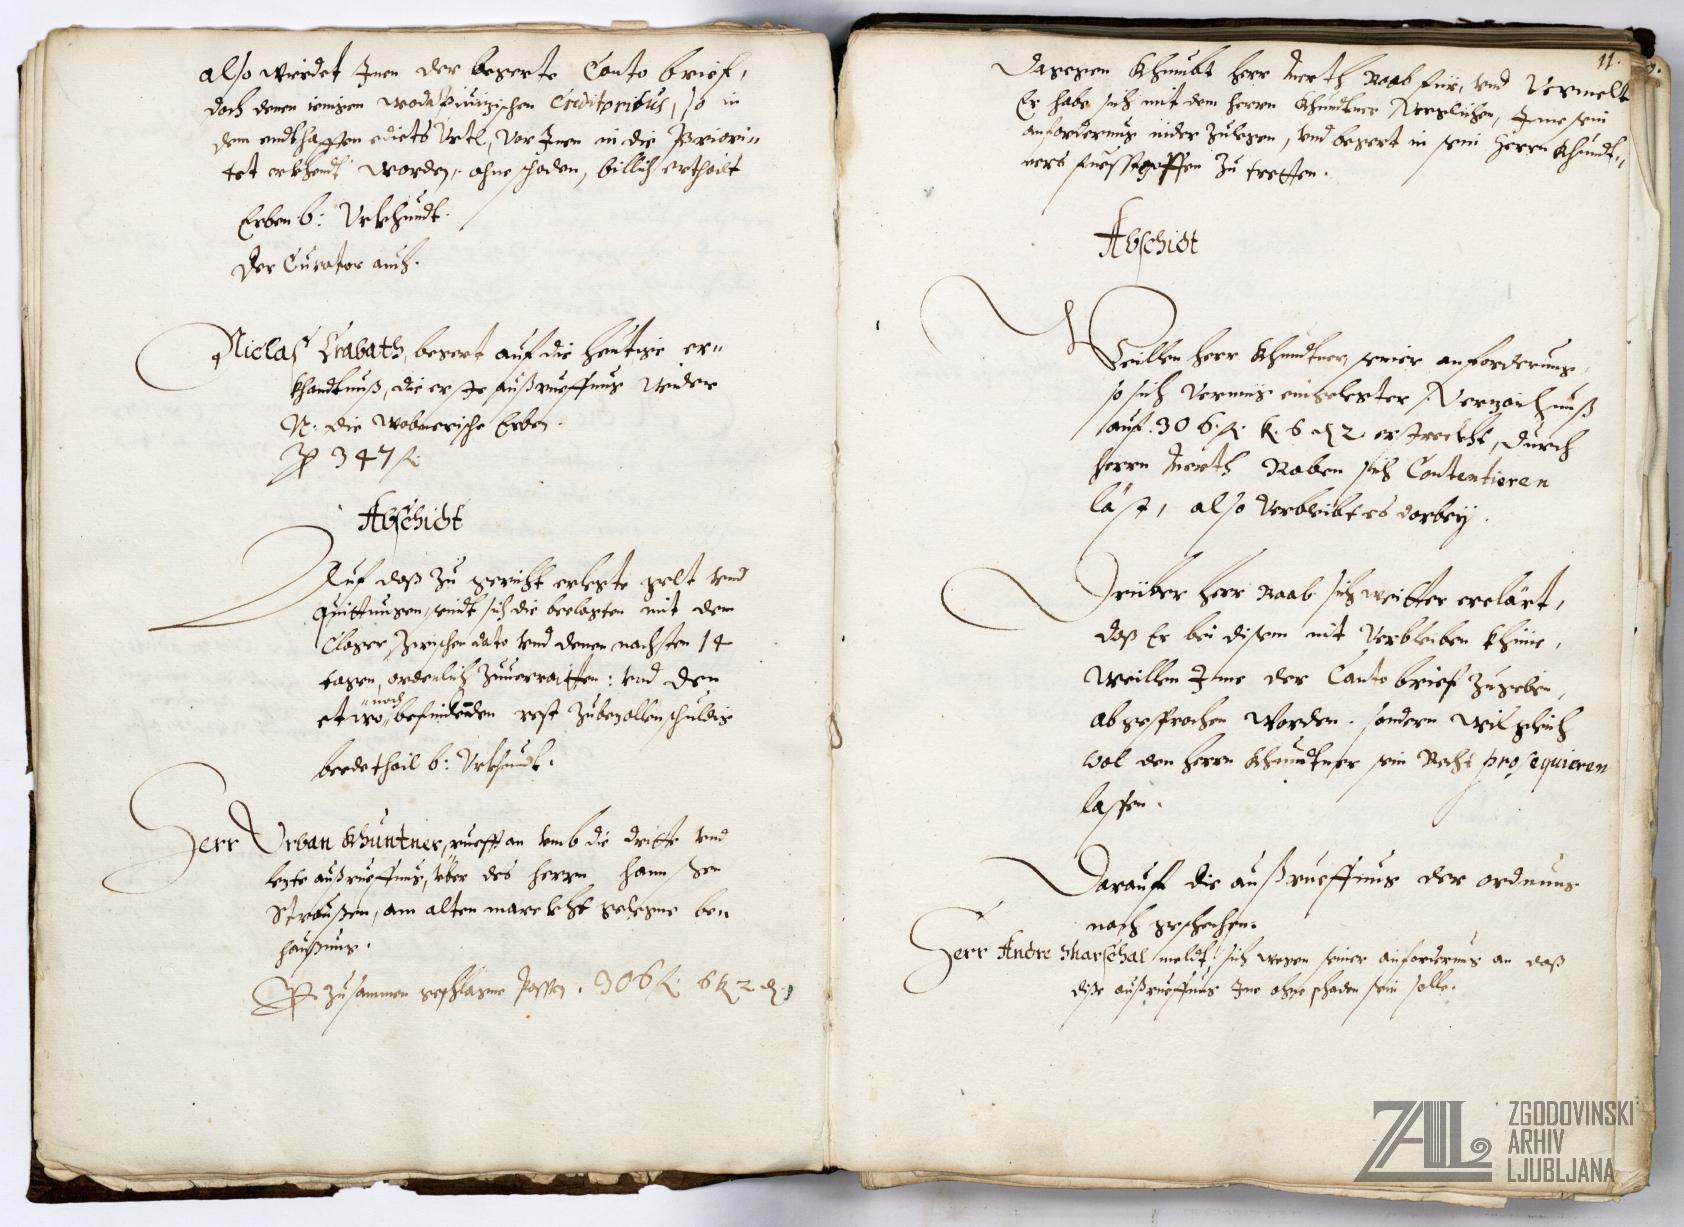 also wirdet Inen der begerte Canto brief,
doch denen ienigen wodapiuizischen Creditoribus, so in
dem endthafften edicts Urtl, vor Inen in die Priori-
tet erkhendt worden, ohne schaden, billich ertheilt
Erben b: Urkhundt.
Der Curator auch.
Niclaß Crabath, begert auf die heutige er-
khandtnuß, die erste außrueffung wider
N: die Wobnerische Erben.
Per 347 fl:
Abschidt
Auf daß zu gericht erlegte gelt und
quittungen, seindt sich die beclagten mit dem
Clager, zwischen dato und denen nachsten 14
tagen, ordenlich zuuerraitten: und den
noch
etwo befindenden rest zubezallen schuldig
beede thail b: Urkhundt.
Herr Urban Khuntner, rueff an umb die dritte und
lezte außrueffung, über des herrn hannßen
Straußen, am alten marckht gelegne be-
haußung.
Per zusammen geschlagne Posten. 306 fl: 6 k 2 d
11.
Dagegen khumbt herr Mert Raab für, und vermelt
Er habe sich mit dem herrn Khundtner verglichen, Ime sein
anforderung nider zulegen, und begert in sein herrn Khundt-
ners fuesstapffen zu tretten.
Abschidt
Weillen herr Khundtner, seiner anforderung,
so sich vermüg eingelegter Verzaichnuß
auf. 306. fl: k. 6 d 2 erstreckht, durch
herrn Merth Raben sich Contentieren
läst, also verbleibt es darbey.
Drüber herr Raab sich weitter erclärt,
daß Er bei disem nit verbleiben khüne,
weillen Ime der Canto brief zugeben,
abgesprochen worden. sondern wil gleich
wol den herrn Khundtner sein Recht prosequieren
lassen.
Darauf die außrueffung der ordnung
nach geschechen.
Herr Andre Harschal meldt sich wegen seiner anforderung an daß
diße außrueffung Ime ohne schaden sein solle.
ZAL
ZGODOVINSKI
ARHIV
LJUBLJANA